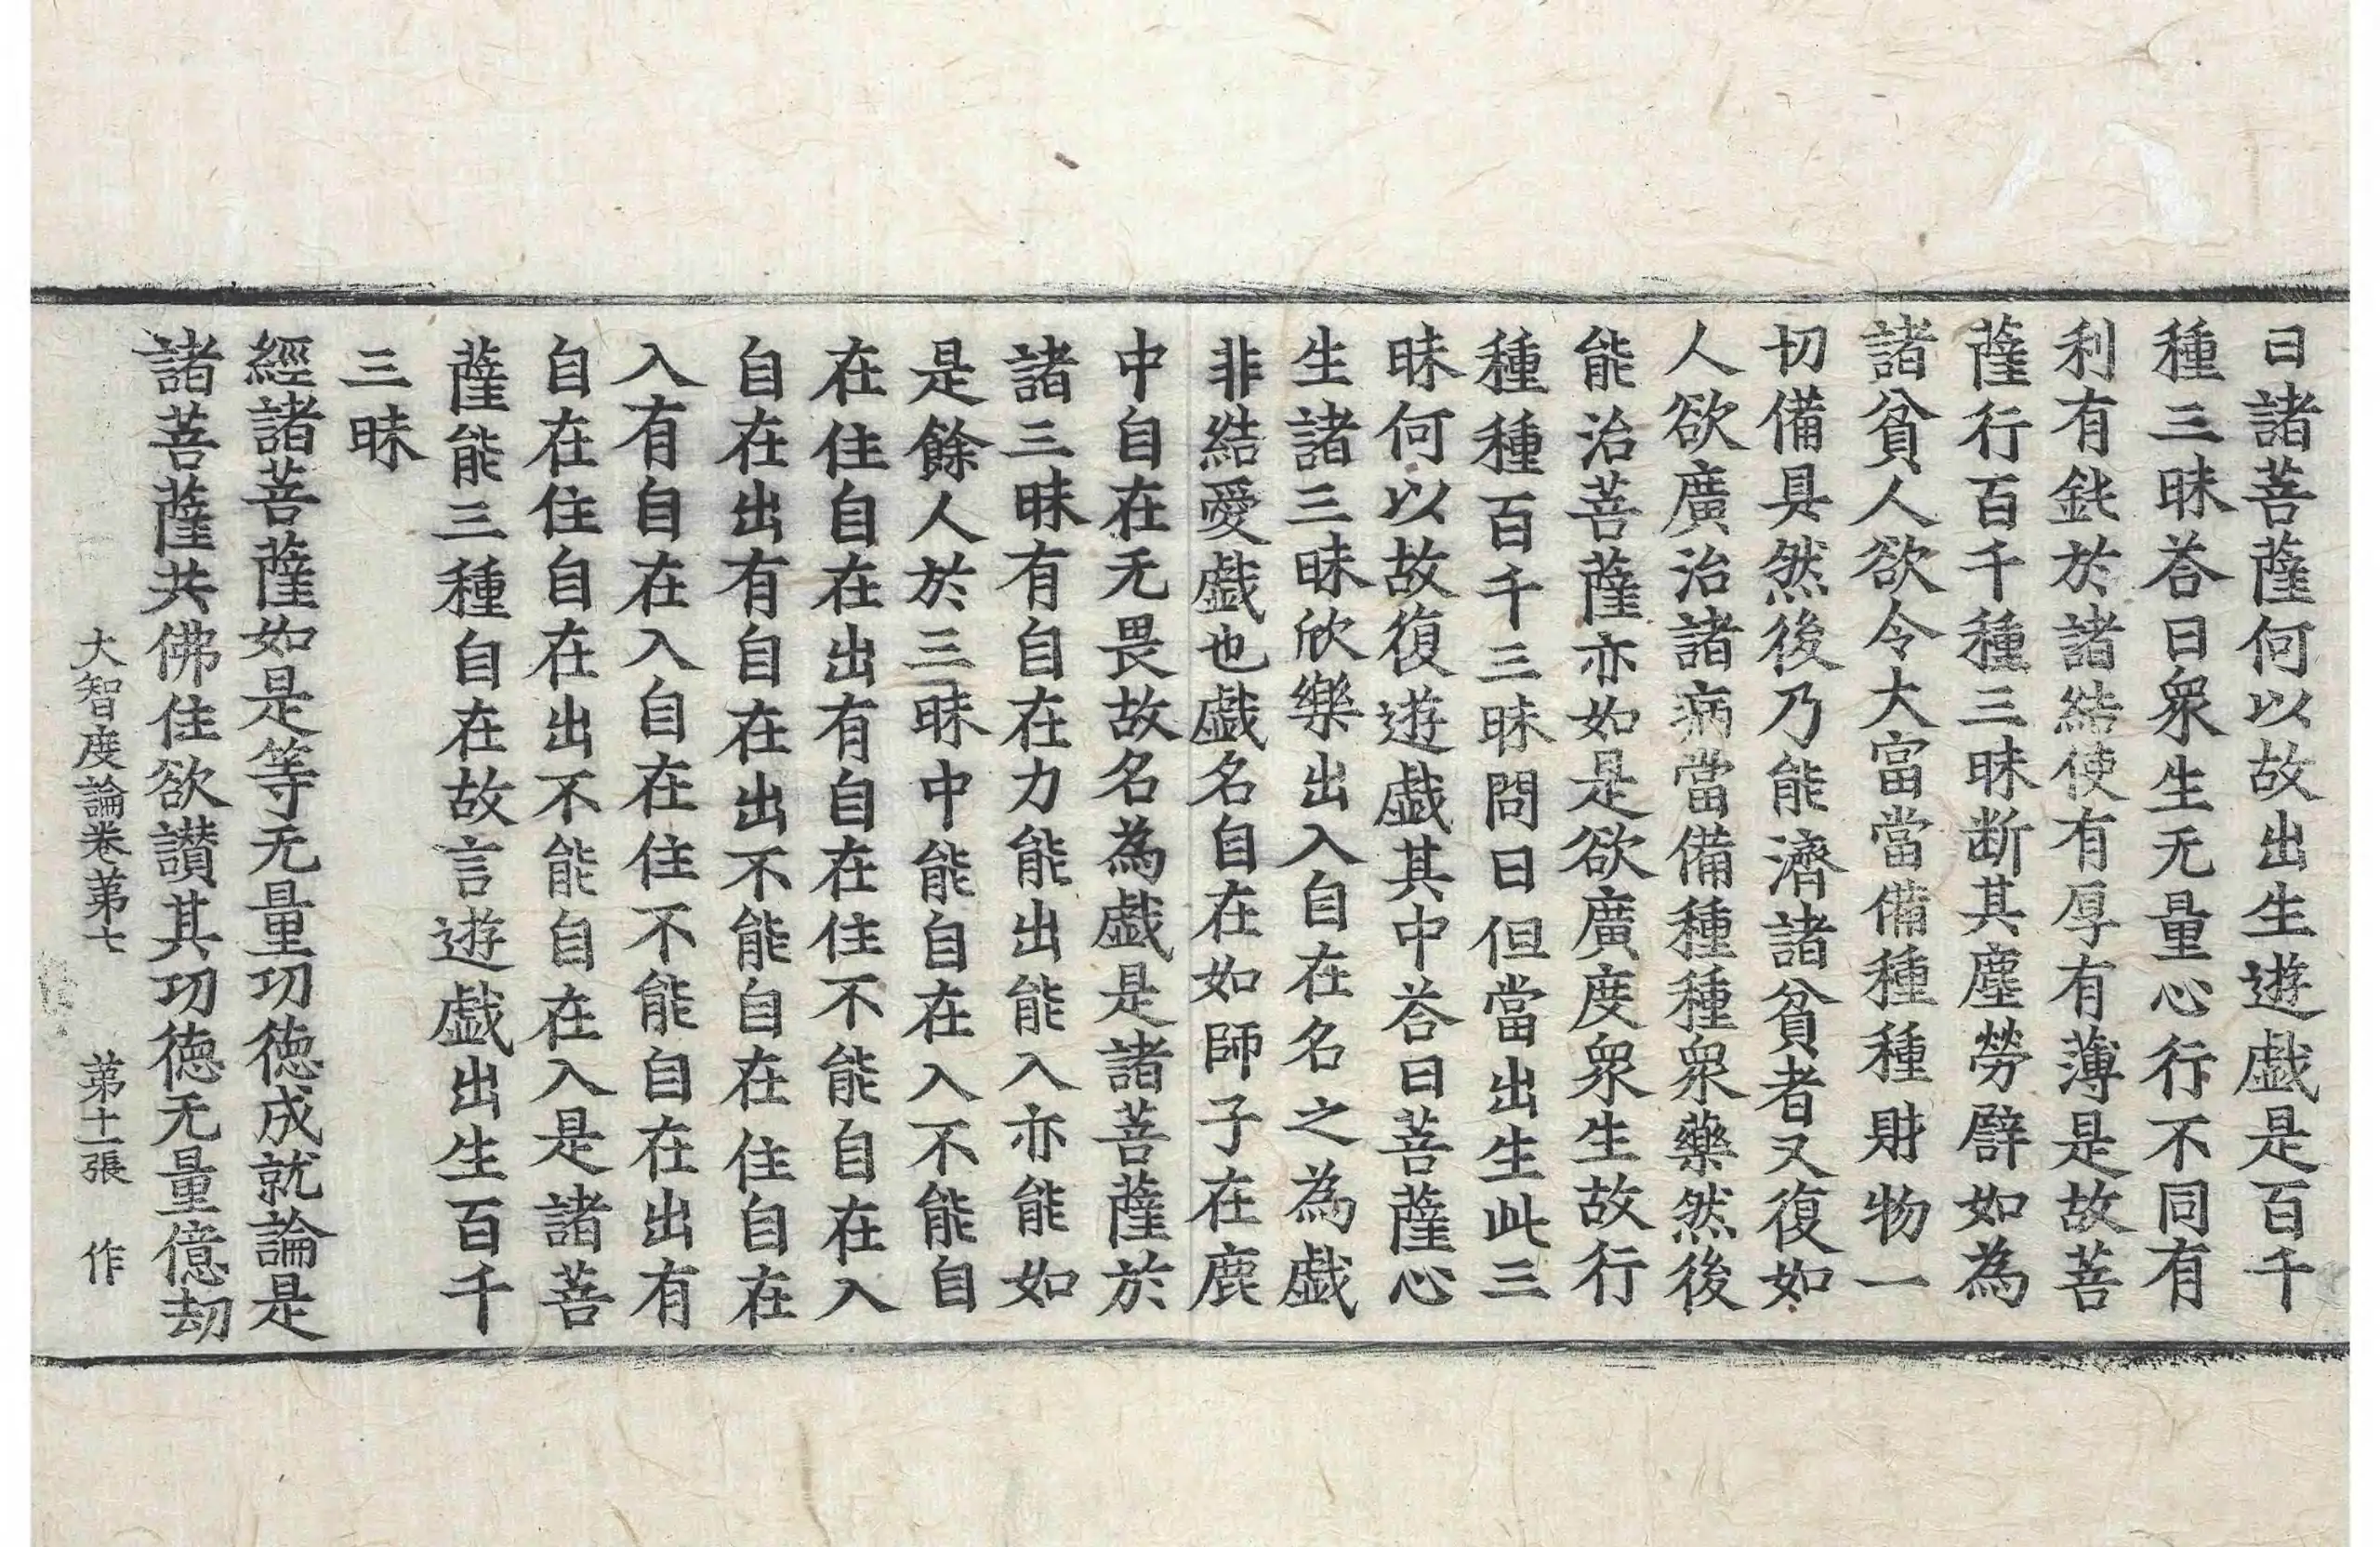 曰諸菩薩何以故出生遊戲是百千
種三昧荅曰衆生无量心行不同有
利有鈍於諸結使有厚有薄是故菩
薩行百千種三昧断其塵勞譬如為
諸貧人欲令大富當備種種財物一
切備具然後乃能濟諸貧者又復如
人欲廣治諸病當備種種衆藥然後
能治菩薩亦如是欲廣度衆生故行
種種百千三昧問曰但當出生此三
昧何以故復遊戲其中荅曰菩薩心
生諸三昧欣樂出入自在名之為戲
非結愛戲也戲名自在如師子在鹿
中自在无畏故名為戲是諸菩薩於
諸三昧有自在力能出能入亦能如
是餘人於三昧中能自在入不能自
在住自在出有自在住不能自在入
自在出有自在出不能自在住自在
入有自在入自在住不能自在出有
自在住自在出不能自在入是諸菩
薩能三種自在故言遊戲出生百千
三昧
經諸菩薩如是等无量功德成就論是
諸菩薩共佛住欲讃其功德无量億劫
大智度論卷苐七　苐十二張　作